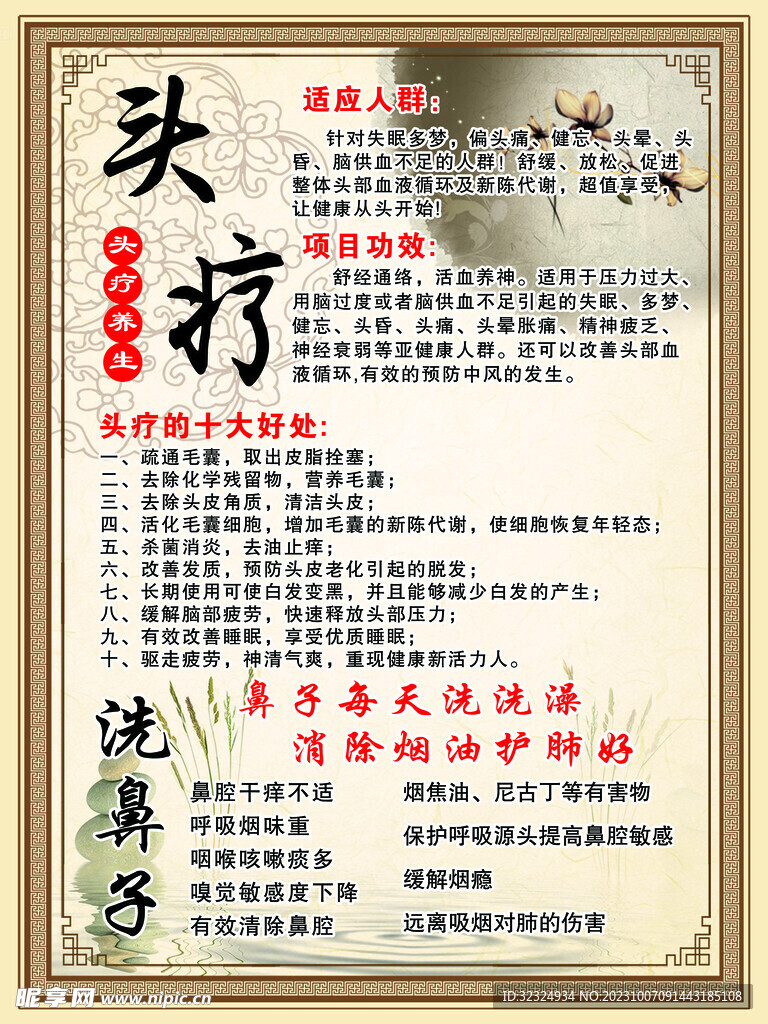 头疗
头疗养生
适应人群：
针对失眠多梦，偏头痛、健忘、头晕、头
昏、脑供血不足的人群！舒缓、放松、促进
整体头部血液循环及新陈代谢，超值享受，
让健康从头开始!
项目功效:
舒经通络，活血养神。适用于压力过大、
用脑过度或者脑供血不足引起的失眠、多梦、
健忘、头昏、头痛、头晕胀痛、精神疲乏、
神经衰弱等亚健康人群。还可以改善头部血
液循环,有效的预防中风的发生。
头疗的十大好处:
一、疏通毛囊，取出皮脂拴塞；
二、去除化学残留物，营养毛囊；
三、去除头皮角质，清洁头皮；
四、活化毛囊细胞，增加毛囊的新陈代谢，使细胞恢复年轻态；
五、杀菌消炎，去油止痒；
六、改善发质，预防头皮老化引起的脱发；
七、长期使用可使白发变黑，并且能够减少白发的产生；
八、缓解脑部疲劳，快速释放头部压力；
九、有效改善睡眠，享受优质睡眠；
十、驱走疲劳，神清气爽，重现健康新活力人。
洗鼻子
鼻子每天洗洗澡
消除烟油护肺好
鼻腔干痒不适
呼吸烟味重
咽喉咳嗽痰多
嗅觉敏感度下降
有效清除鼻腔
烟焦油、尼古丁等有害物
保护呼吸源头提高鼻腔敏感
缓解烟瘾
远离吸烟对肺的伤害
昵享网 www.nipic.cn
ID:32324934 NO:20231007091443185108